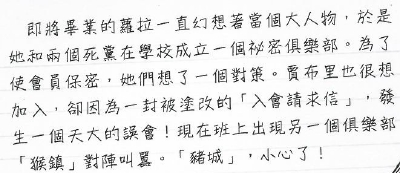 即將畢業的蘿拉一直幻想著當個大人物，於是
她和兩個死黨在學校成立一個祕密俱樂部。為了
使會員保密，她們想了一個對策。賈布里也很想
加入，卻因為一封被塗改的「入會請求信」，發
生一個天大的誤會！現在班上出現另一個俱樂部
「猴鎮」對陣叫囂。「豬城」，小心了！